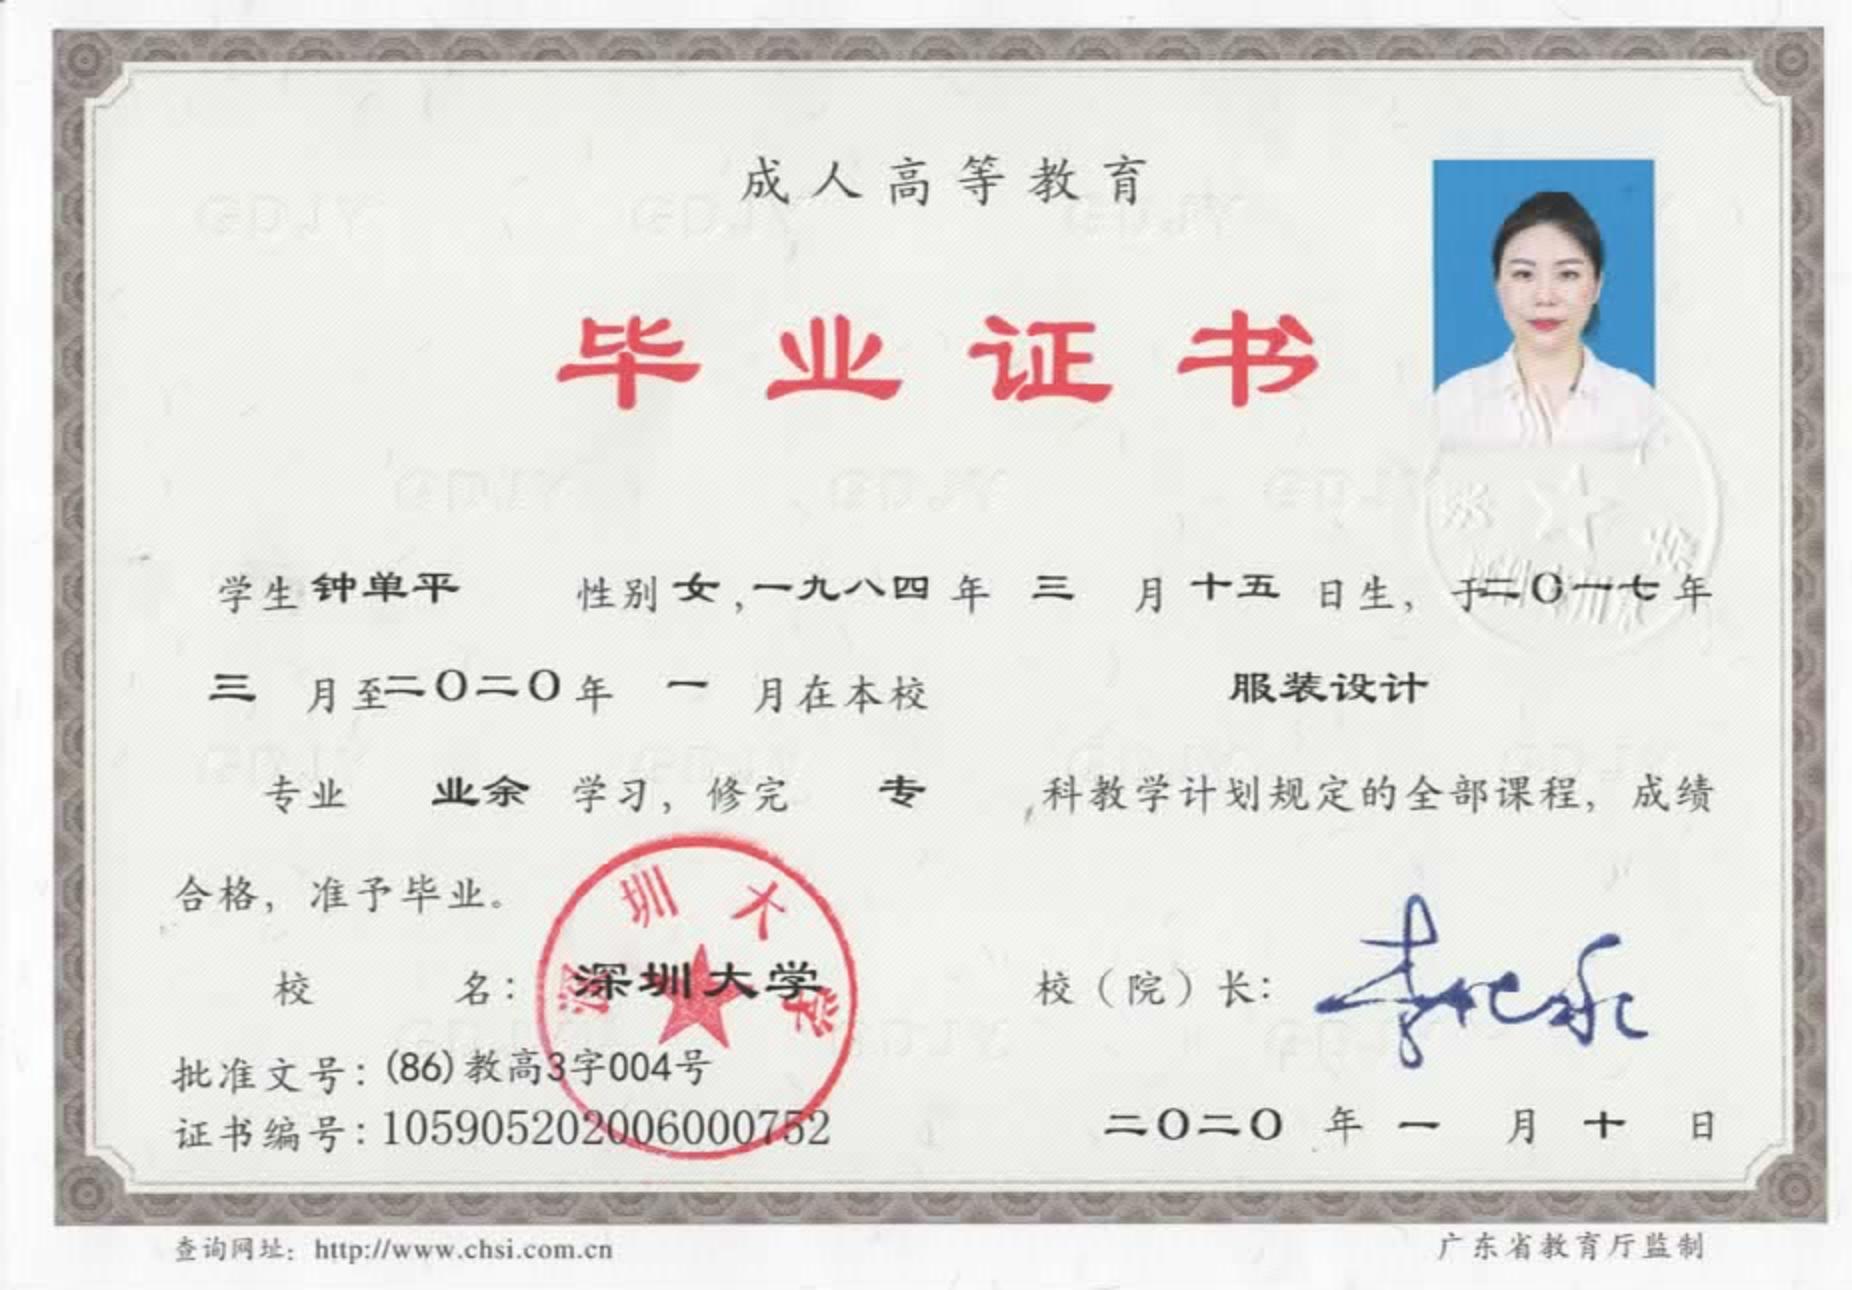 成人高等教育
毕业证书
学生 钟单平 性别 女，一九八四 年 三 月 十五 日生，于二〇一七 年
三 月至二〇二〇年 一 月在本校 服装设计
专业 业余 学习，修完 专 科教学计划规定的全部课程，成绩
合格，准予毕业。
深圳大学
校 名：深圳大学 校（院）长：
批准文号：(86)教高3字004号
证书编号：105905202006000752 二〇二〇 年 一 月 十 日
查询网址：http://www.chsi.com.cn 广东省教育厅监制